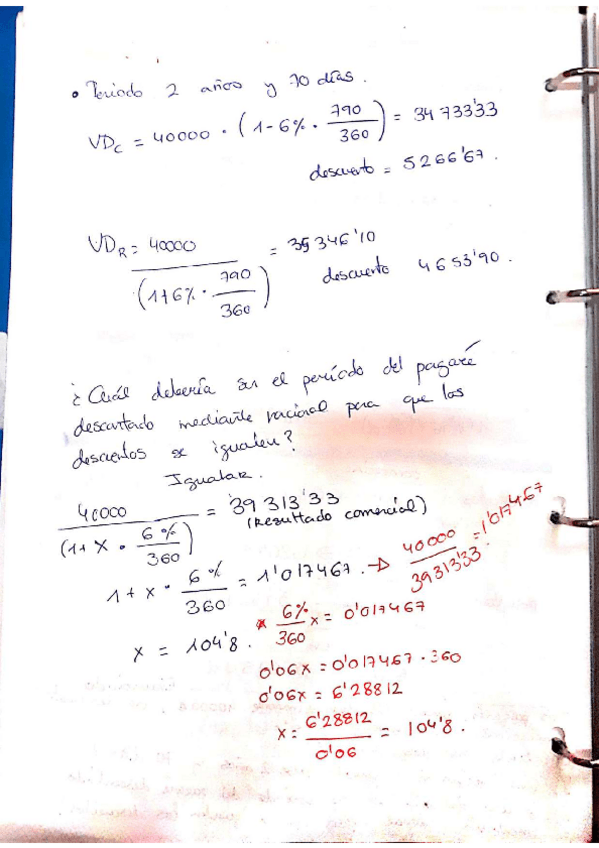 • Periodo 2 años y 70 días.
VDc = 40000 · (1 - 6% · 790/360) = 34 733'33
descuento = 5266'67.
VDR = 40000/(1+6% · 790/360) = 35 346'10
descuento 4653'90.
¿Cuál debería ser el período del pagaré
descontado mediante racional para que los
descuentos se igualen?
Igualar.
40000/(1+ X · 6%/360) = 39 313'33
(Resultado comercial)
1 + x · 6%/360 = 1'017467. → 40000/39313'33 = 1'017467
x = 104'8.
* 6%/360 x = 0'017467
0'06x = 0'017467 · 360
0'06x = 6'28812
x = 6'28812/0'06 = 104'8.